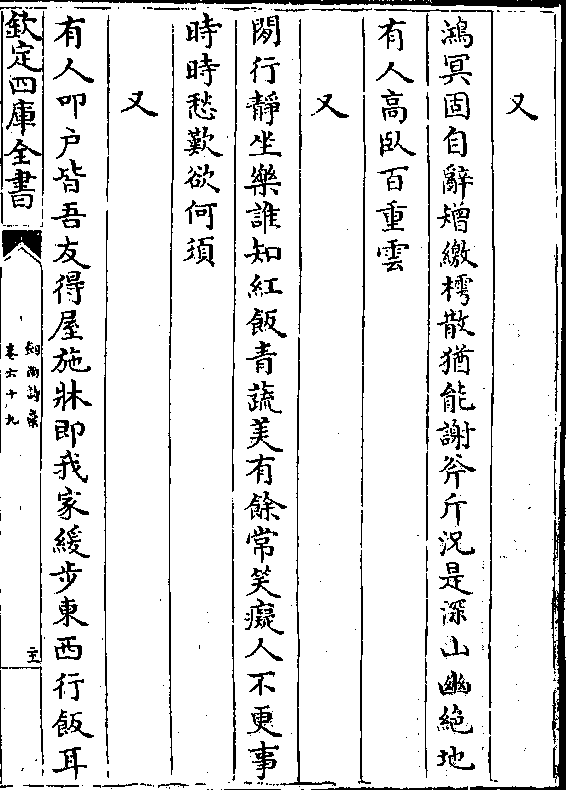 又
鴻冥固自辭矰繳樗散猶能謝斧斤況是深山幽絶地
有人高臥百重雲
又
閑行静坐樂誰知紅飯青蔬美有餘常笑癡人不更事
時時愁歎欲何須
又
有人叩户皆吾友得屋施牀即我家緩步東西行飯耳
欽定四庫全書
劍南詩藁
卷六十九